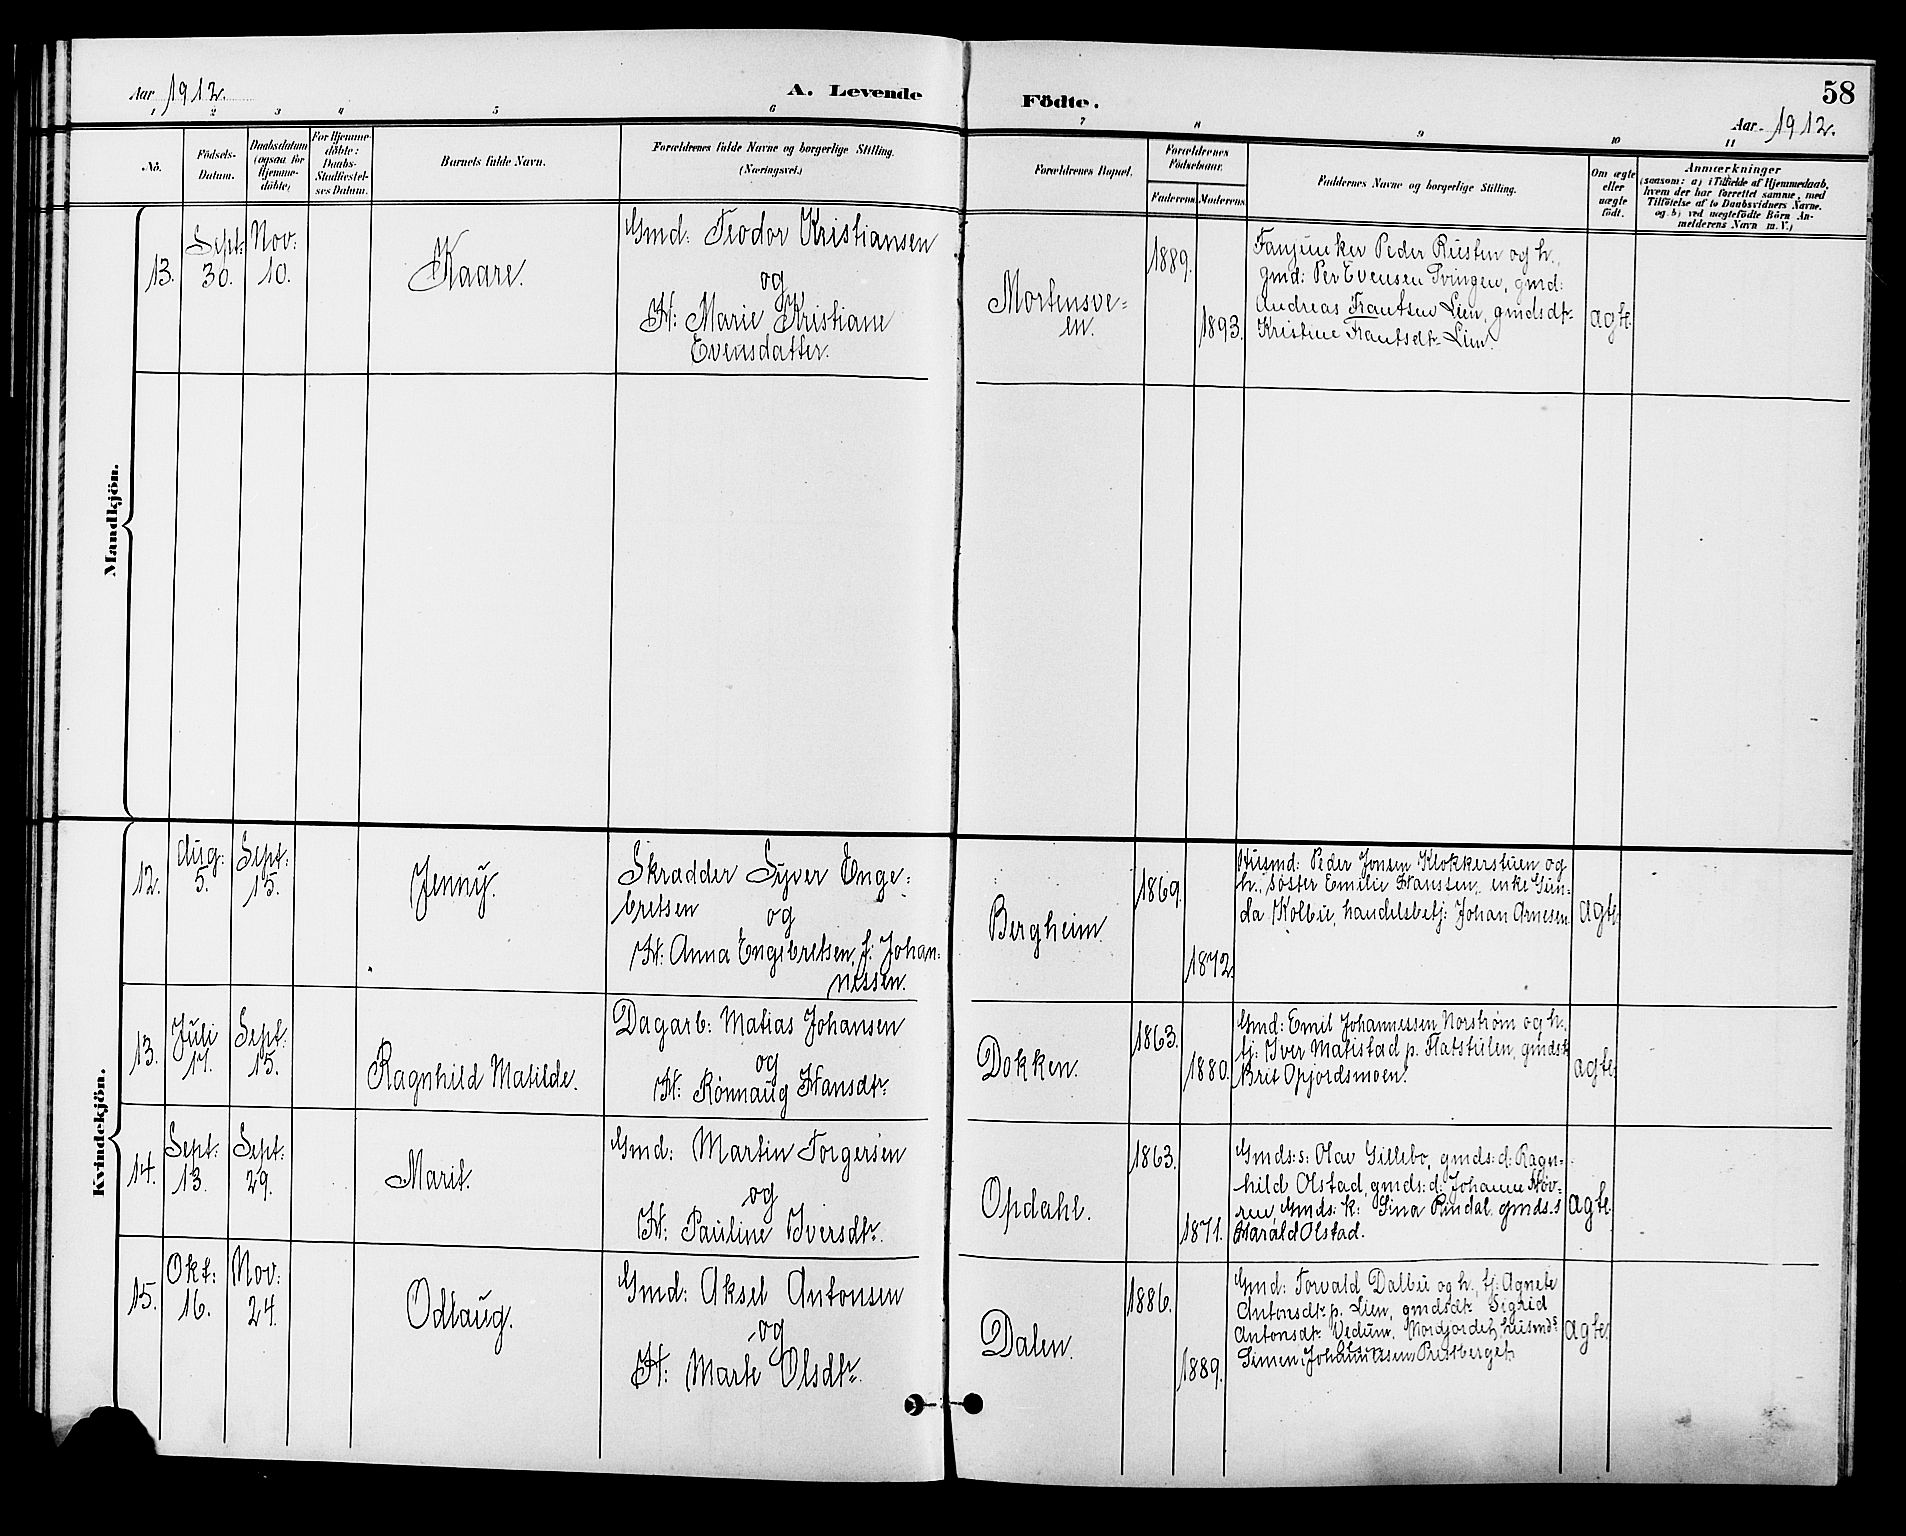 Aar 1912.
A. Levende
Födte.
58
Aar 1912.
1 2 3 4 5 6 7 8 9 10 11
No.
Födsels-
Datum.
Daabsdatum
(ogsaa for
Hjemme-
döbte)
For Hjemme-
döbte:
Daabs-
Stadfæstel-
ses Datum.
Barnets fulde Navn.
Forældrenes fulde Navne og borgerlige Stilling.
(Næringsvei.)
Forældrenes Bopæl.
Forældrenes
Födselsaar.
Faderens.
Moderens.
Faddernes Navne og borgerlige Stilling.
Om ægte
eller
uægte
födt.
Anmærkninger
(saasom: a) i Tilfælde af Hjemmedaab,
hvem der har forrettet samme, med
Tilföielse af to Daabsvidners Navne.
og b) ved uægtefödte Börn An-
melderens Navn m. V.)
Mandkjön.
13.
Sept:
30.
Nov:
10.
Kaare.
Gmd: Teodor Kristiansen
og
H: Marie Kristiane
Evensdatter.
Mortensve=
en.
1889.
1893.
Fanjunker Peder Rusten og h.,
gmd: Per Evensen Svingen, gmd:
Andreas Frantsen Lien, gmdsdtr
Kristine Frantsdtr Lien.
ægte.
Kvindekjön.
12.
Aug:
5.
Sept:
15.
Jenny.
Skrædder Syver Enge=
bretsen og
H: Anna Engebretsen, f: Johan-
nessen.
Bergheim.
1869.
1872.
Husmd: Peder Jonsen Klokkerstuen og
h., søster Emilie Hanssen, enke Gun-
da Kolbu, handelsbetj: Johan Arnesen
ægte
13.
Juli
17.
Sept:
15.
Ragnhild Matilde.
Dagarb: Matias Johansen
og
H: Rønnaug Hansdtr.
Dokken.
1863.
1880.
Gmd: Emil Johannessen Norstrøm og h.,
tj: Iver Matistad p. Flatstulen, gmdsdtr
Brit Opjordsmoen.
ægte.
14.
Sept:
13.
Sept:
29.
Marit.
Gmd: Martin Torgersen
og
H: Pauline Iversdtr.
Opdahl.
1863.
1871.
Gmds:s: Olav Gillebo, gmds:d: Ragn-
hild Olstad, gmds:d: Johanne Nør-
ren, Gmds:k: Sina Rindal, gmds.s
Harald Olstad.
ægte.
15.
Okt:
16.
Nov:
24.
Odlaug.
Gmd: Aksel Antonsen
og
H: Marte Olsdtr.
Dalen.
1886.
1889.
Gmd: Torvald Dalbu og h., tj: Agnete
Antonsdtr p. Lien, gmdsdtr Sigrid
Antonsdtr Vedum, Nordjordet, husmds
Simen Johannessen Prestberget.
ægte.